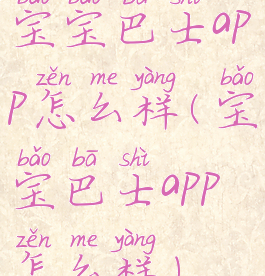 bǎo bǎo bā shì
宝宝巴士ap
zěn me yàng bǎo
p怎么样(宝
bǎo bā shì
宝巴士app
zěn me yàng
怎么样)